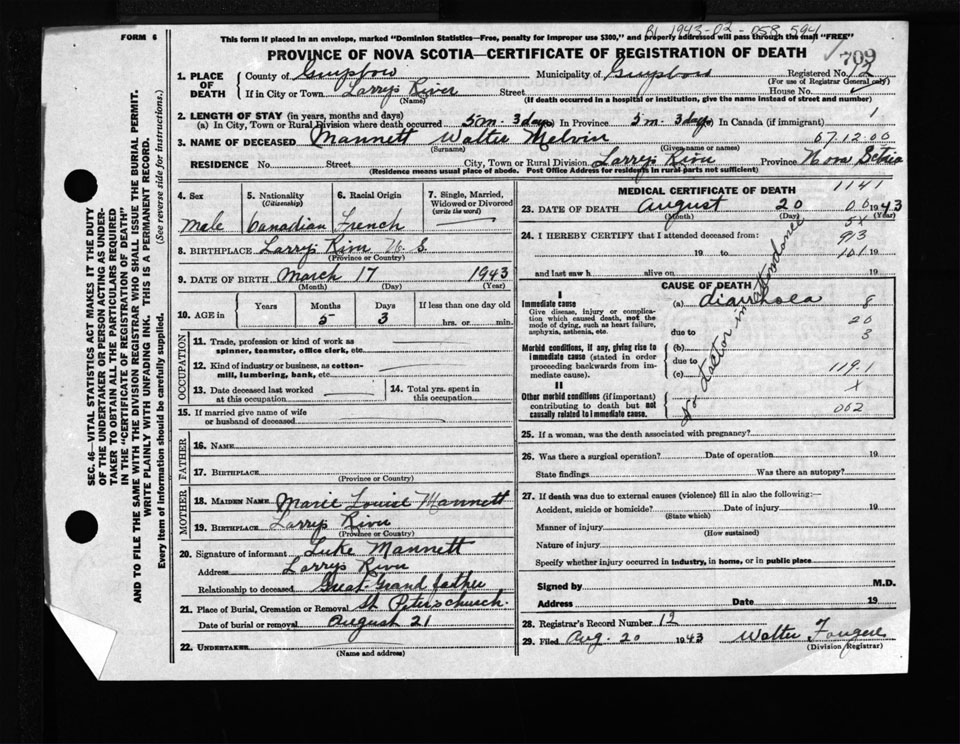 FORM 6
This form if placed in an envelope, marked "Dominion Statistics—Free, penalty for improper use $300," and properly addressed will pass through the mail "FREE"
1943-02-058594
PROVINCE OF NOVA SCOTIA—CERTIFICATE OF REGISTRATION OF DEATH
709
1. PLACE OF DEATH
County of Guysboro Municipality of Guysboro Registered No. 12
(For use of Registrar General only)
If in City or Town Larrys River Street House No.
(Name) (If death occurred in a hospital or institution, give the name instead of street and number)
2. LENGTH OF STAY (in years, months and days)
(a) In City, Town or Rural Division where death occurred 5 m. 3 days In Province 5 m. 3 days In Canada (if immigrant) 1
3. NAME OF DECEASED Mannett Walter Melvin 67.12.00
(Surname) (Given name or names)
RESIDENCE No. Street City, Town or Rural Division Larrys River Province Nova Scotia
(Residence means usual place of abode. Post Office Address for residents in rural parts not sufficient)
4. Sex
Male
5. Nationality
(Citizenship)
Canadian
6. Racial Origin
French
7. Single, Married, Widowed or Divorced
(write the word)
8. BIRTHPLACE Larrys River N. S.
(Province or Country)
9. DATE OF BIRTH March 17 1943
(Month) (Day) (Year)
10. AGE in
Years Months Days If less than one day old
5 3 hrs. or min.
OCCUPATION
11. Trade, profession or kind of work as spinner, teamster, office clerk, etc.
12. Kind of industry or business, as cotton-mill, lumbering, bank, etc.
13. Date deceased last worked at this occupation
14. Total yrs. spent in this occupation
15. If married give name of wife or husband of deceased
FATHER
16. NAME
17. BIRTHPLACE
(Province or Country)
MOTHER
18. MAIDEN NAME Marie Louise Mannett
19. BIRTHPLACE Larrys River
(Province or Country)
20. Signature of informant Luke Mannett
Address Larrys River
Relationship to deceased Great-Grand father
21. Place of Burial, Cremation or Removal St Peters church.
Date of burial or removal August 21
22. UNDERTAKER
(Name and address)
MEDICAL CERTIFICATE OF DEATH 1141
23. DATE OF DEATH August 20 1943
(Month) (Day) (Year)
24. I HEREBY CERTIFY that I attended deceased from:
913
19 to 101 19
and last saw h alive on 19
CAUSE OF DEATH
I
Immediate cause (a) diarrhoea 8
Give disease, injury or complication which caused death, not the mode of dying, such as heart failure, asphyxia, asthenia, etc.
20
due to 3
Morbid conditions, if any, giving rise to immediate cause (stated in order proceeding backwards from immediate cause).
(b)
due to
(c) 119.1
II
x
Other morbid conditions (if important) contributing to death but not causally related to immediate cause.
002
No doctor in attendance
25. If a woman, was the death associated with pregnancy?
26. Was there a surgical operation? Date of operation 19
State findings Was there an autopsy?
27. If death was due to external causes (violence) fill in also the following:—
Accident, suicide or homicide? Date of injury 19
(State which)
Manner of injury
(How sustained)
Nature of injury
Specify whether injury occurred in industry, in home, or in public place
Signed by M.D.
Address Date 19
28. Registrar's Record Number 12
29. Filed Aug. 20 1943 Walter Fougere
(Division Registrar)
SEC. 46—VITAL STATISTICS ACT MAKES IT THE DUTY
OF THE UNDERTAKER OR PERSON ACTING AS UNDER-
TAKER TO OBTAIN ALL THE PARTICULARS REQUIRED
IN THE "CERTIFICATE OF REGISTRATION OF DEATH"
AND TO FILE THE SAME WITH THE DIVISION REGISTRAR WHO SHALL ISSUE THE BURIAL PERMIT.
WRITE PLAINLY WITH UNFADING INK. THIS IS A PERMANENT RECORD.
Every item of information should be carefully supplied. (See reverse side for instructions.)